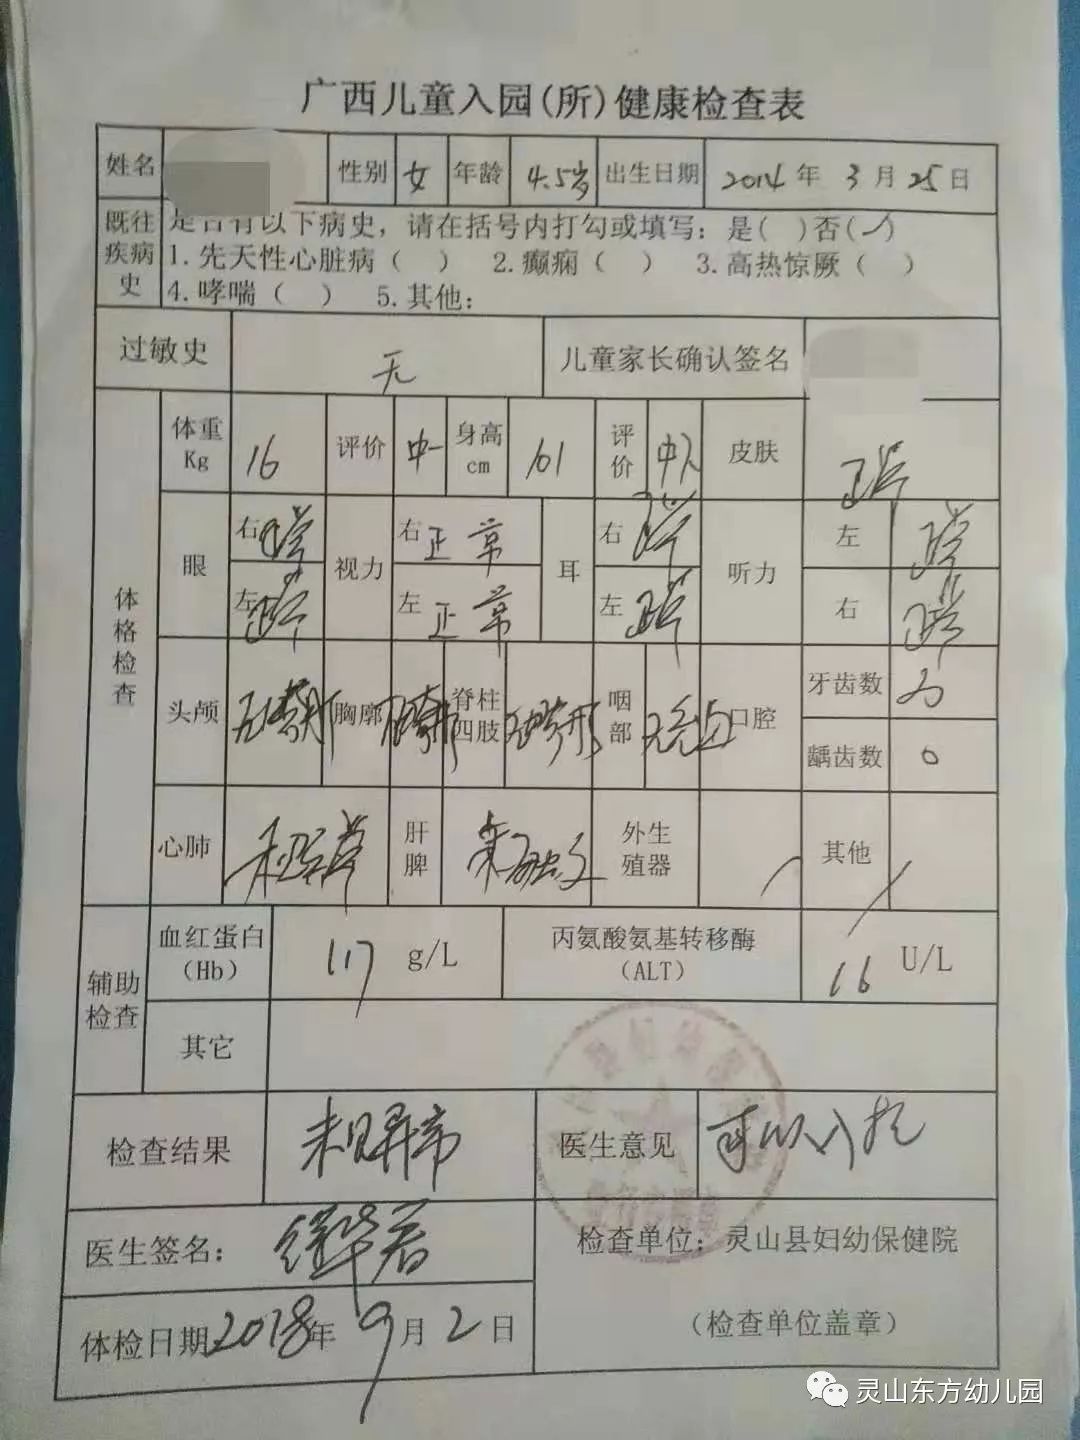 广西儿童入园(所)健康检查表
姓名 性别 女 年龄 4.5岁 出生日期 2014年 3月 25日
既往疾病史 是否有以下病史，请在括号内打勾或填写：是( )否(✓)
1.先天性心脏病（ ） 2.癫痫（ ） 3.高热惊厥（ ）
4.哮喘（ ） 5.其他：
过敏史 无 儿童家长确认签名
体格检查
体重Kg 16 评价 中- 身高cm 101 评价 皮肤 正常
眼 右 正常 视力 右 正常 耳 右 正常 听力 左 正常
左 正常 左 正常 左 正常 右 正常
头颅 无畸形 胸廓 无畸形 脊柱四肢 无畸形 咽部 无充血 口腔 牙齿数 20
龋齿数 0
心肺 未见异常 肝脾 未触及 外生殖器 / 其他 /
辅助检查
血红蛋白（Hb） 117 g/L 丙氨酸氨基转移酶（ALT） 16 U/L
其它
检查结果 未见异常 医生意见 可以入托
医生签名：
检查单位：灵山县妇幼保健院
体检日期 2018年 9月 2日
（检查单位盖章）
灵山东方幼儿园